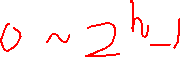 0 ~ 2^h-1